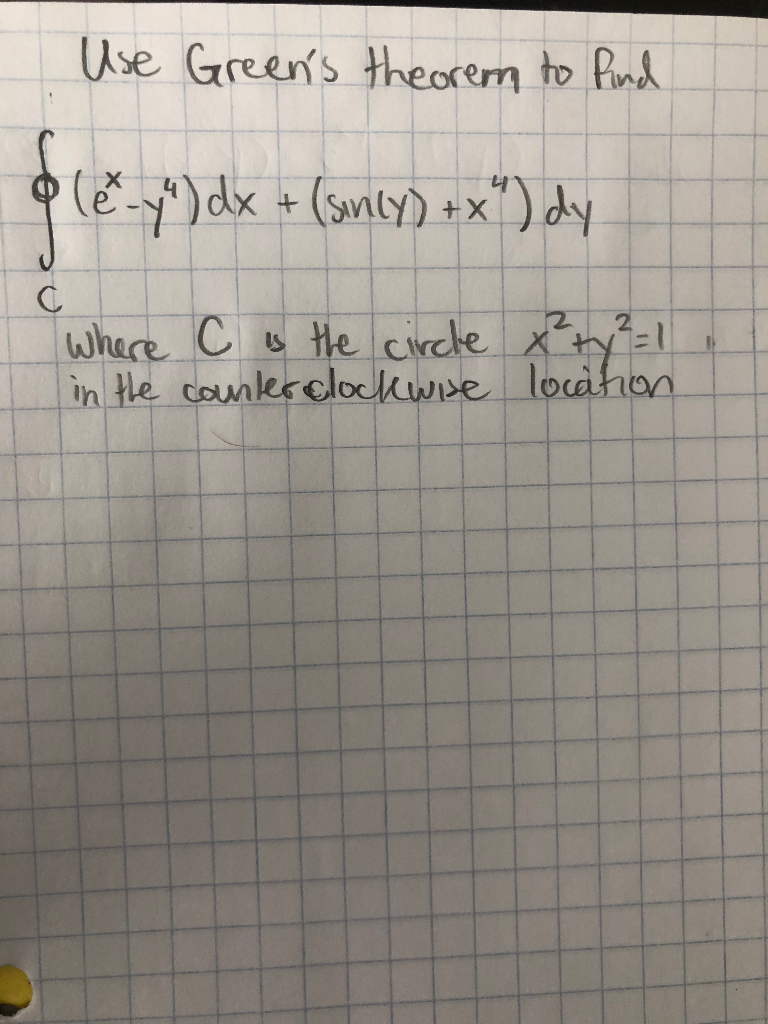 Use Green's theorem to find
∮ (e^x - y^4) dx + (sin(y) + x^4) dy
C
where C is the circle x^2 + y^2 = 1
in the counterclockwise location